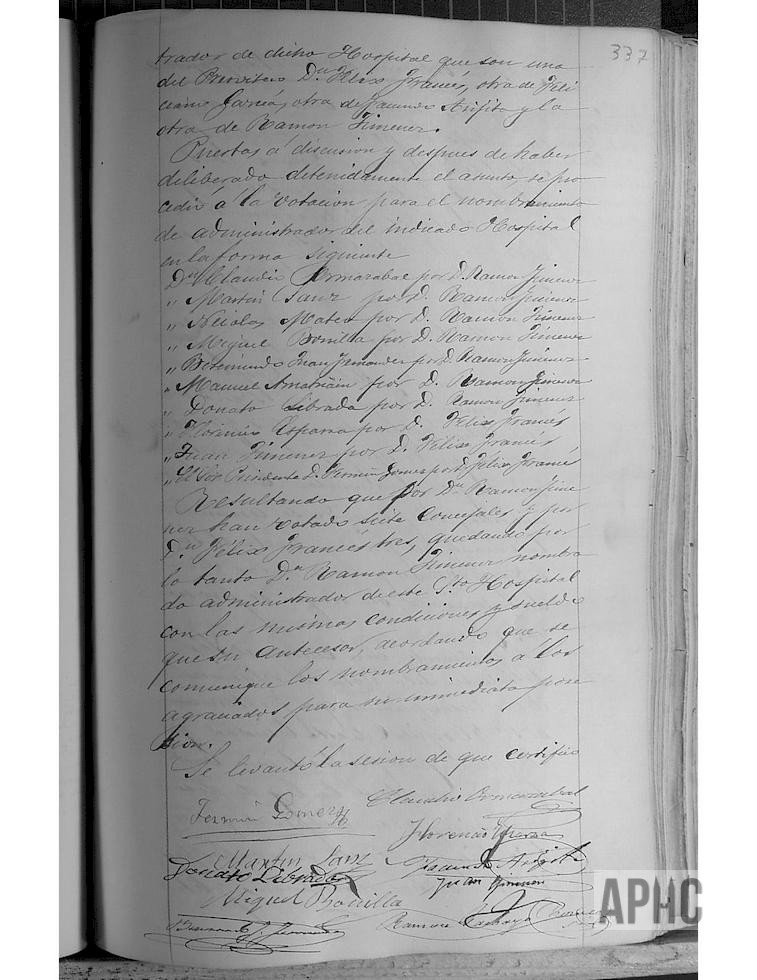 337
trador de dicho Hospital que son una
del Presvitero D.n Felix Francés, otra de Feli
ciano García, otra de Facundo Arifita y la
otra de Ramon Jimenez.
Puestas á discusion y despues de haber
deliberado detenidamente el asunto, se pro
cedió á la votacion para el nombramiento
de administrador del indicado Hospital
en la forma siguiente
D.n Claudio Ormazabal por D. Ramon Jimenez
" Martin Sanz por D. Ramon Jimenez
" Nicolas Mateo por D. Ramon Jimenez
" Miguel Bonilla por D. Ramon Jimenez
" Beremundo Juan Fernandez por D. Ramon Jimenez
" Manuel Amatriain por D. Ramon Jimenez
" Donato Librada por D. Ramon Jimenez
" Esparza por D. Felix Francés
" Juan Jimenez por D. Felix Francés
" El Sor Presidente D. Fermin Gomez por D. Felix Francés
Resultando que por D.n Ramon Jime
nez han votado siete Concejales y por
D.n Félix Francés tres, quedando por
lo tanto D.n Ramon Jimenez nombra
do administrador de este S.to Hospital
con las mismas condiciones y sueldo
que su antecesor, acordando que se
comunique los nombramientos a los
agraciados para su inmediata pose
sion.
Se levantó la sesion de que certifico
Claudio Ormazabal
Fermin Gomez
Martin Sanz
Donato Librada
Juan Jimenez
Miguel Bonilla
Ramon
APHC